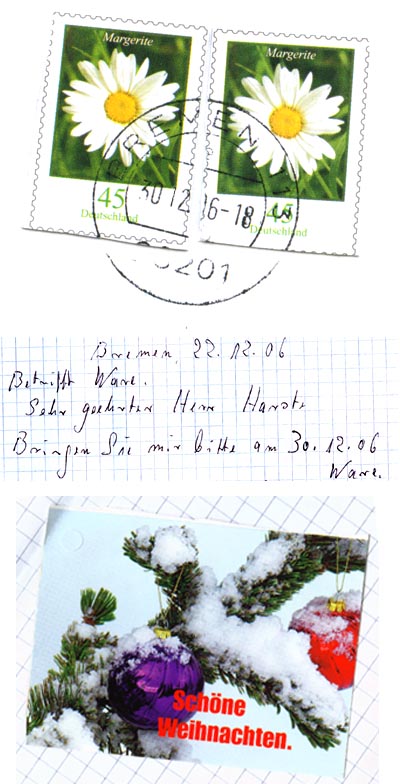 Margerite
Margerite
BREMEN
30.12.06-18
45
Deutschland
45
Deutschland
8201
Bremen, 22.12.06
Betrifft Ware.
Sehr geehrter Herr
Bringen Sie mir bitte am 30.12.06
Ware.
Schöne
Weihnachten.